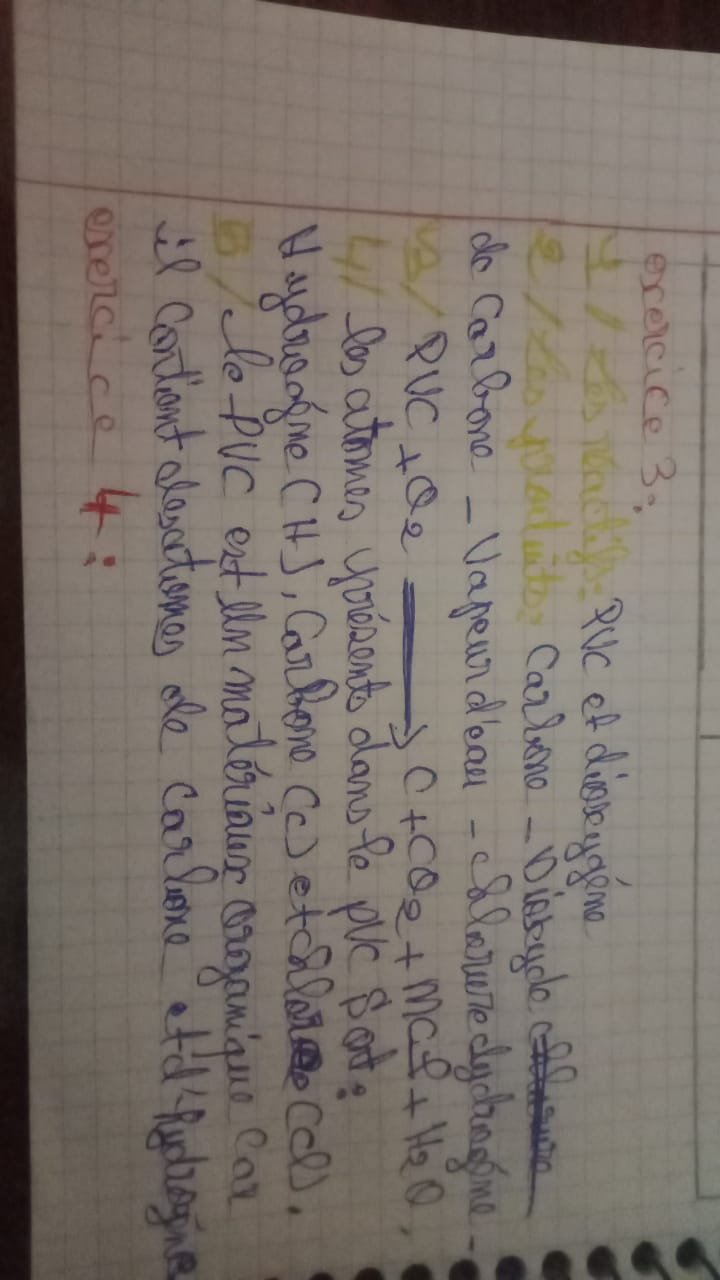 exercice 3:
1/ Les réactifs: PVC et dioxygène
2/ Les produits: Carbone - Dioxyde
de Carbone - Vapeur d'eau - chlorure dydrogène -
3/ PVC + O2 → C + CO2 + HCl + H2O,
4/ les atomes présents dans le PVC sont:
Hydrogène (H), Carbone (C) et chlore (Cl).
5/ le PVC est un matériaux organique Car
il Contient des atomes de carbone et d'hydrogène
exercice 4: